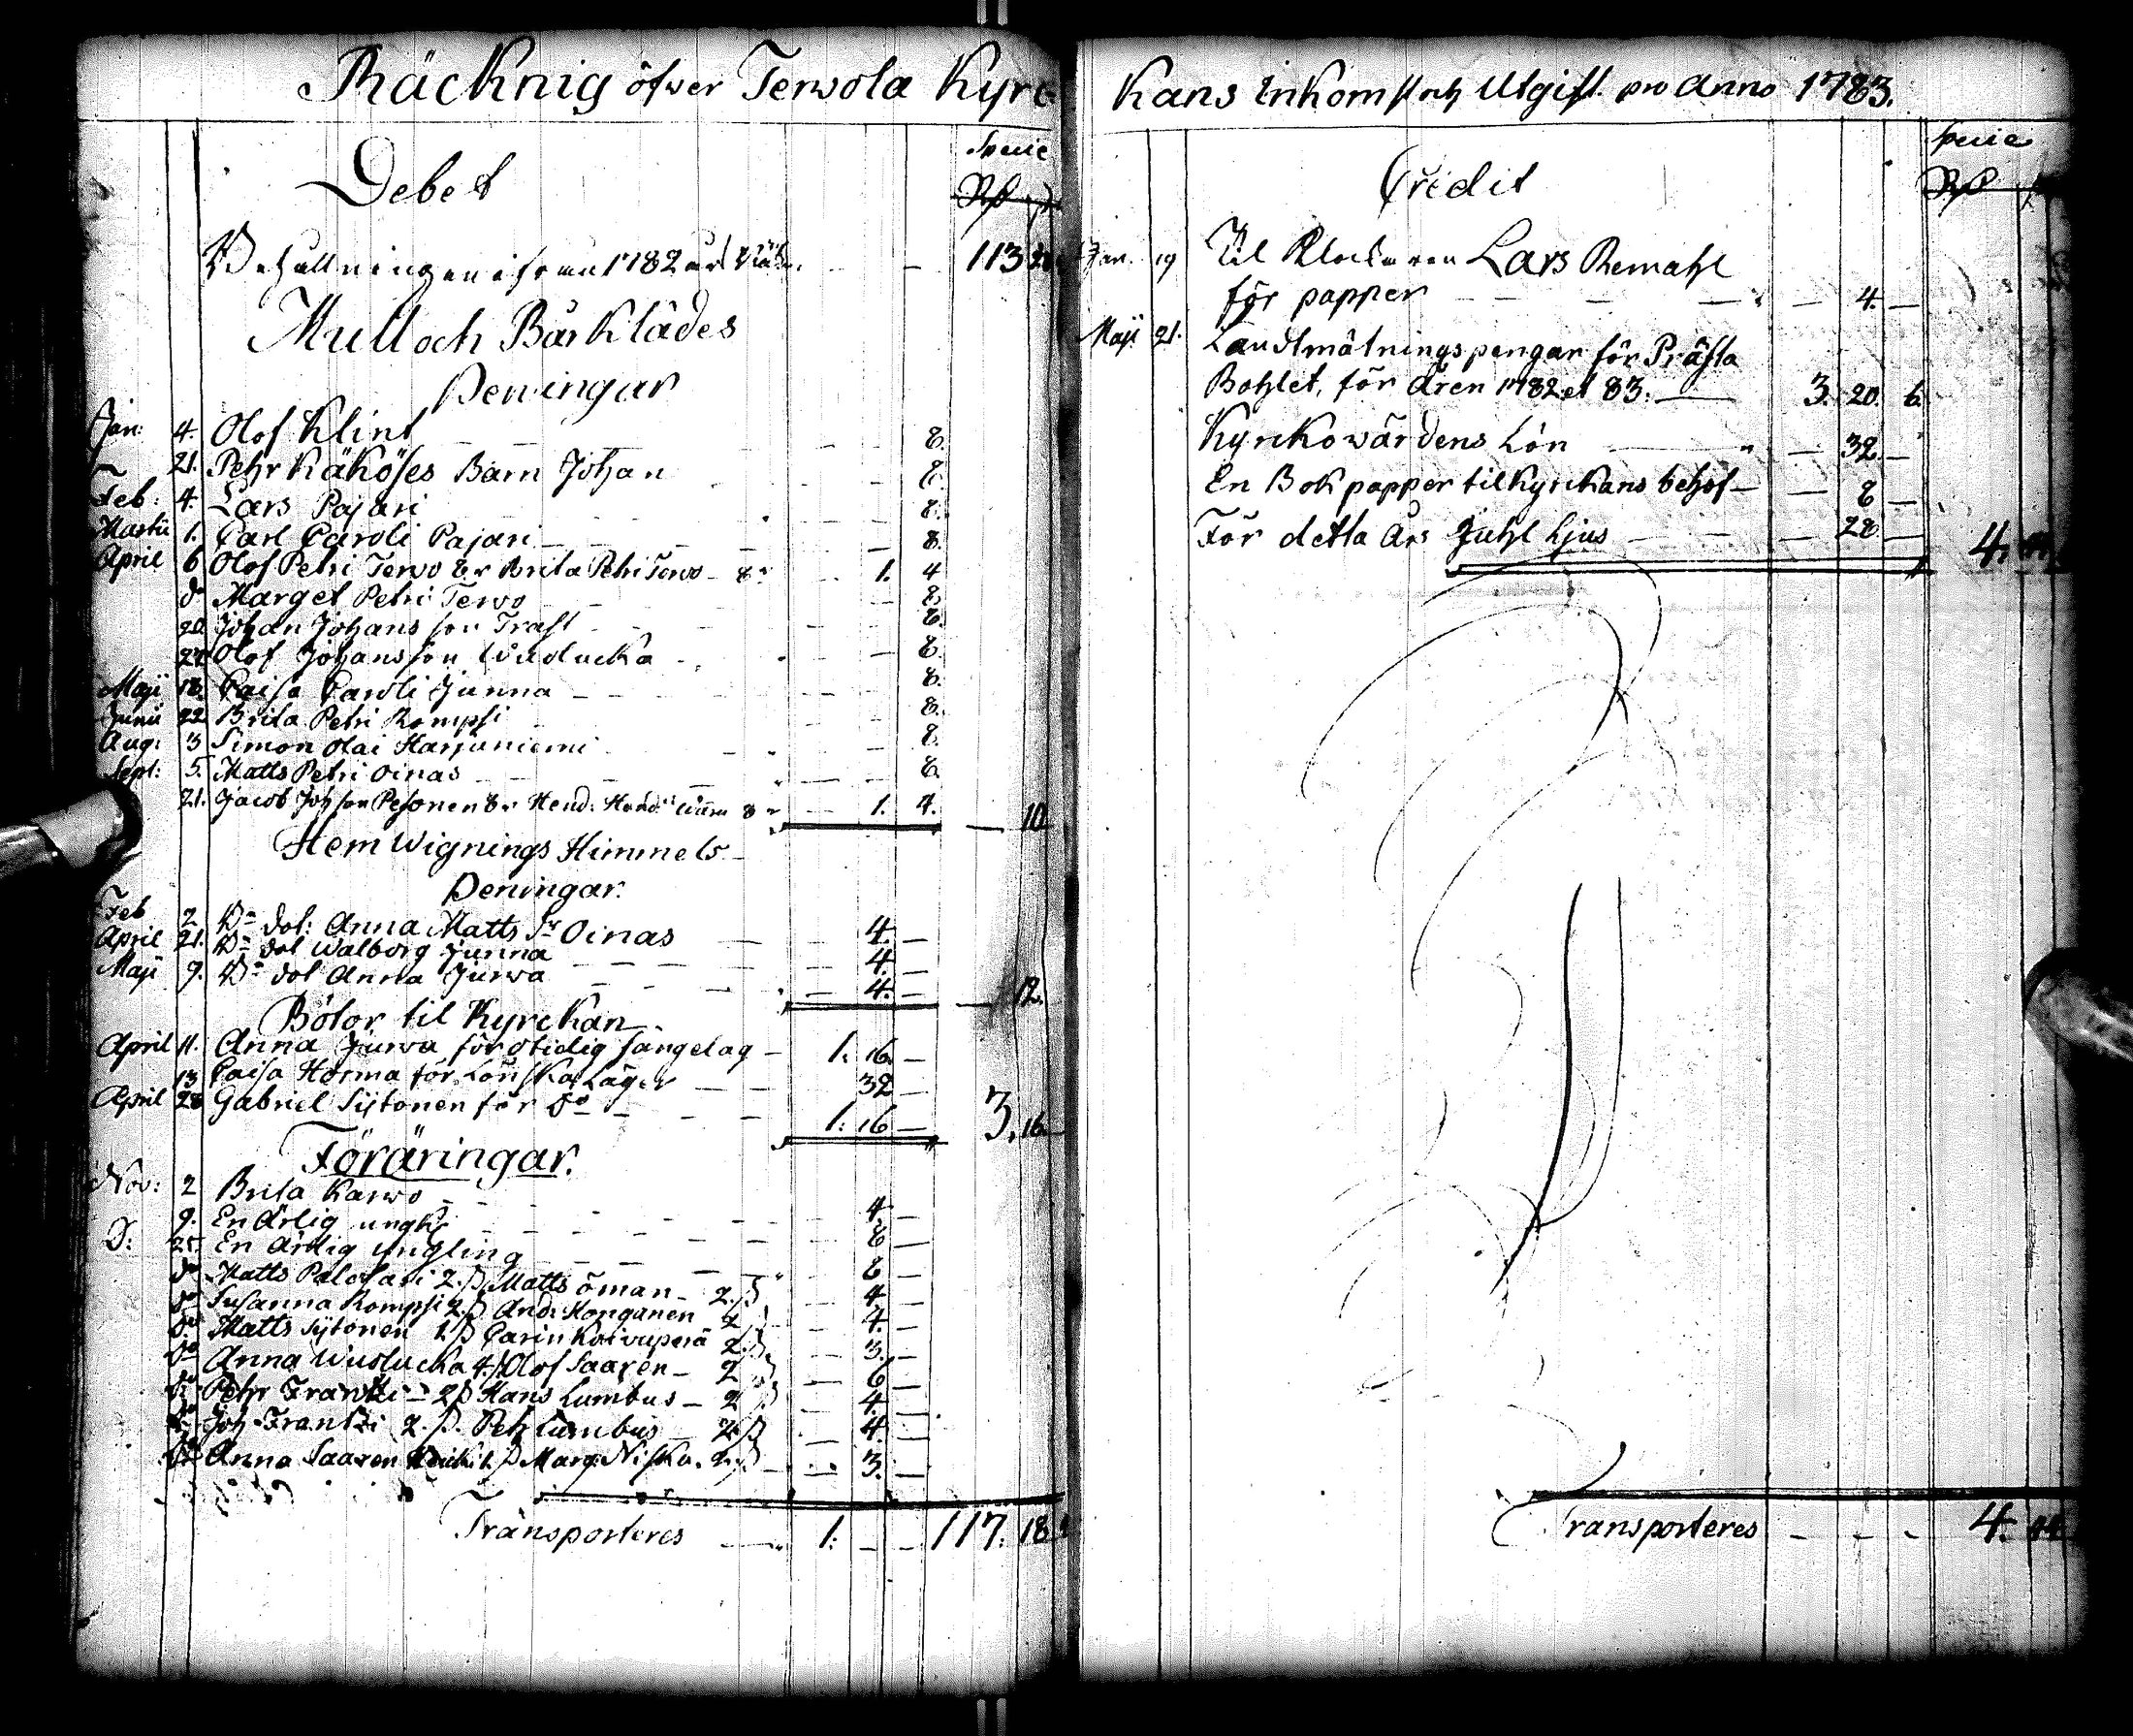 Räcknig öfwer Terwola Kyrc
Debet
Specie
Rd
Behållningen ifrån 1782 års 113
Mull och Bårklädes
Peningar
Jan: 4. Olof Klint 8.
21. Pehr Käköses Barn Johan 8.
Feb: 4. Lars Pajari 8.
Martii 1. Carl Caroli Pajari 8.
April 6 Olof Petri Terwo 8r Brita Petri Terwo 8r 1. 4
do Marget Petri Terwo 8
20 Johan Johansson Trast 8.
Olof Johansson 8.
Maji 18. Caisa Caroli Junna 8.
Junii 22 Brita Petri Rompsi 8.
Aug: 3 Simon Olai Harjuniemi 8.
Sept: 5. Matts Petri Oinas 8.
21. Jacob Johsson Pesonen 8r Hend: 8r 1. 4. 10
Hem Wignings Himmels
Peningar.
Feb 2 Anna Matts Dr Oinas 4.
April 21. Walborg Junna 4.
Maji 9. Anna Jurwa 4. 12.
Bötor til Kyrckan
April 11. Anna Jurwa för otidig sängelag 1: 16
13 Caisa Horma för Lönska Läger 32
April 28 Gabriel Sytonen för do 1: 16 3. 16
Föräringar.
Nov: 2 Brita Karwo 4
9. En Ärlig ungk: 8
D: 25. En Ärlig yngling 8
do Matts Palosari 2. ß Matts öman 2. ß 4
do Susanna Rompsi 2. ß And: Honganen 2 ß 4.
do Matts Sytonen 1 ß Carin Koivuperä 2 ß 3.
do Anna 4. ß Olof Saaren 2 ß 6
do Pehr Frantzi 2 ß Hans Lumbus 2 ß 4.
do Joh Frantzi 2. ß. Peh Lumbus 2 ß 4
do Anna Saaren 1 ß Marg: Niska. 2. ß 3.
Transporteres 1: 117. 18
Kans Inkomst och Utgift. pro Anno 1783.
Credit
Specie
Rd
Jan. 19 Til Klockaren Lars Remahl
för papper 4.
Maji 21. Landtmätningspengar för Prästa
Bohlet, för åren 1782 et 83. 3. 20. 6.
Kyrkowärdens Lön 32.
En Bok papper til Kyrckans behof 8
För detta Års Juhl Ljus 28 4.
Transporteres 4.